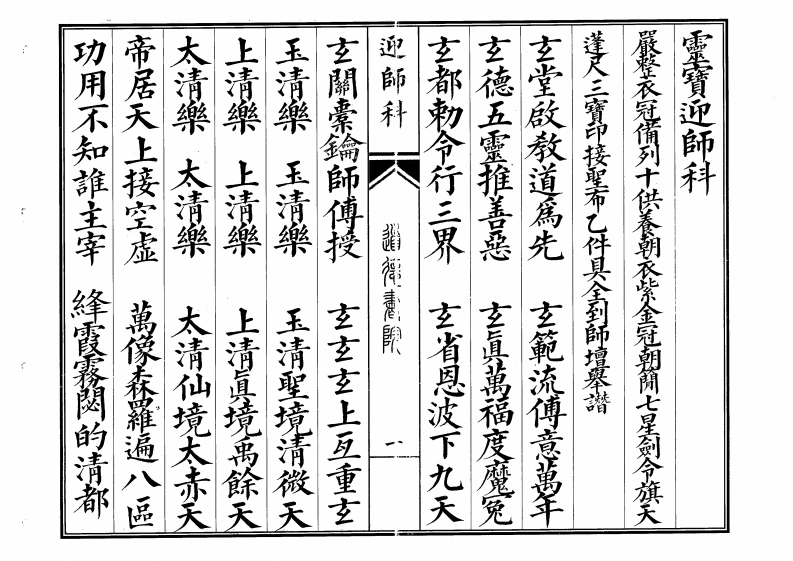 靈寶迎師科
嚴整衣冠備列十供養朝衣紫金冠朝簡七星劍令旗天
蓬尺三寶印接聖布乙件具全到師壇舉讚
玄堂啟教道為先　玄範流傳意萬年
玄德五靈推善惡　玄眞萬福度魔冤
玄都勅令行三界　玄省恩波下九天
迎師科
道德書院
一
玄關橐鑰師傅授　玄玄玄上亙重玄
玉清樂　玉清樂　玉清聖境清微天
上清樂　上清樂　上清眞境禹餘天
太清樂　太清樂　太清仙境太赤天
帝居天上接空虛　萬像森羅遍八區
功用不知誰主宰　絳霞霧閟的清都